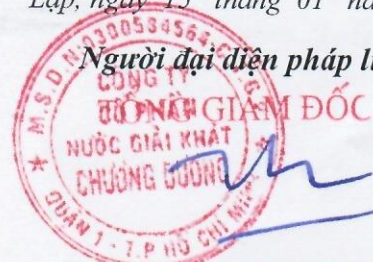 Lập, ngày 15 tháng 01
Người đại diện pháp
GIÁM ĐỐC
M.S.D.N:0300584564
CÔNG TY
CỔ PHẦN
NƯỚC GIẢI KHÁT
CHƯƠNG DƯƠNG
QUẬN 1 - T.P HỒ CHÍ MINH